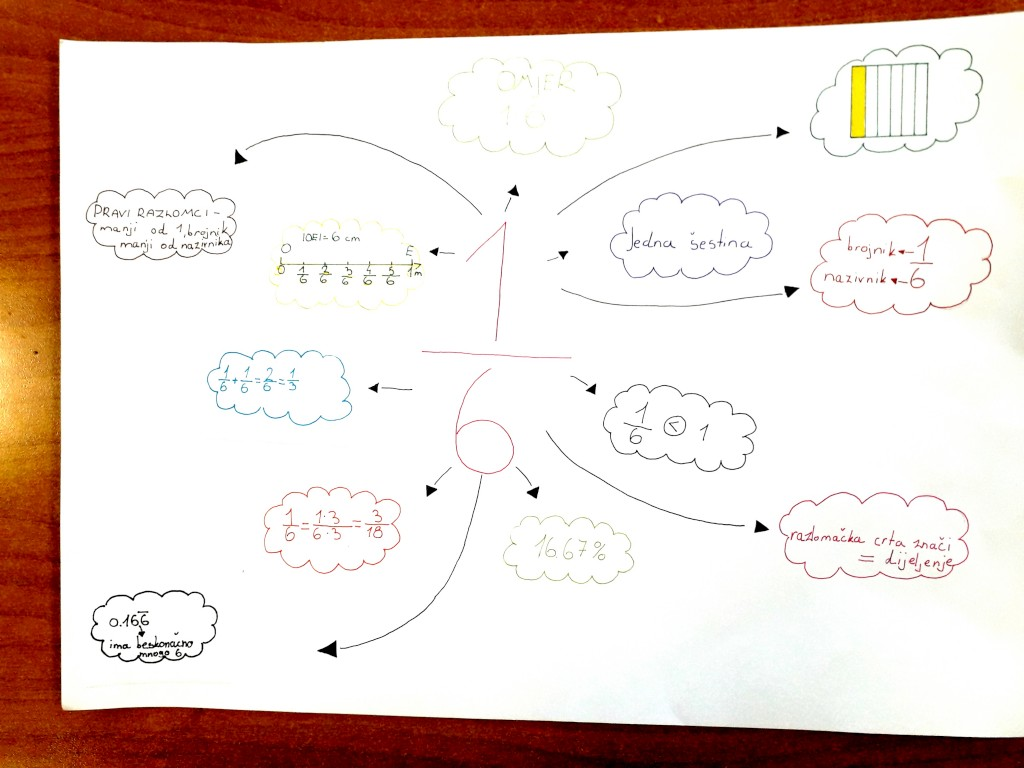 OMJER
PRAVI RAZLOMCI -
manji od 1, brojnik
manji od nazivnika
|OE|=6 cm
O E
0 1/6 2/6 3/6 4/6 5/6 1m
Jedna šestina
brojnik 1
nazivnik 6
1
6
1/6 + 1/6 = 2/6 = 1/3
1/6 < 1
1/6 = 1·3/6·3 = 3/18
16.67%
razlomačka crta znači
= dijeljenje
0.166̅
ima beskonačno
mnogo 6